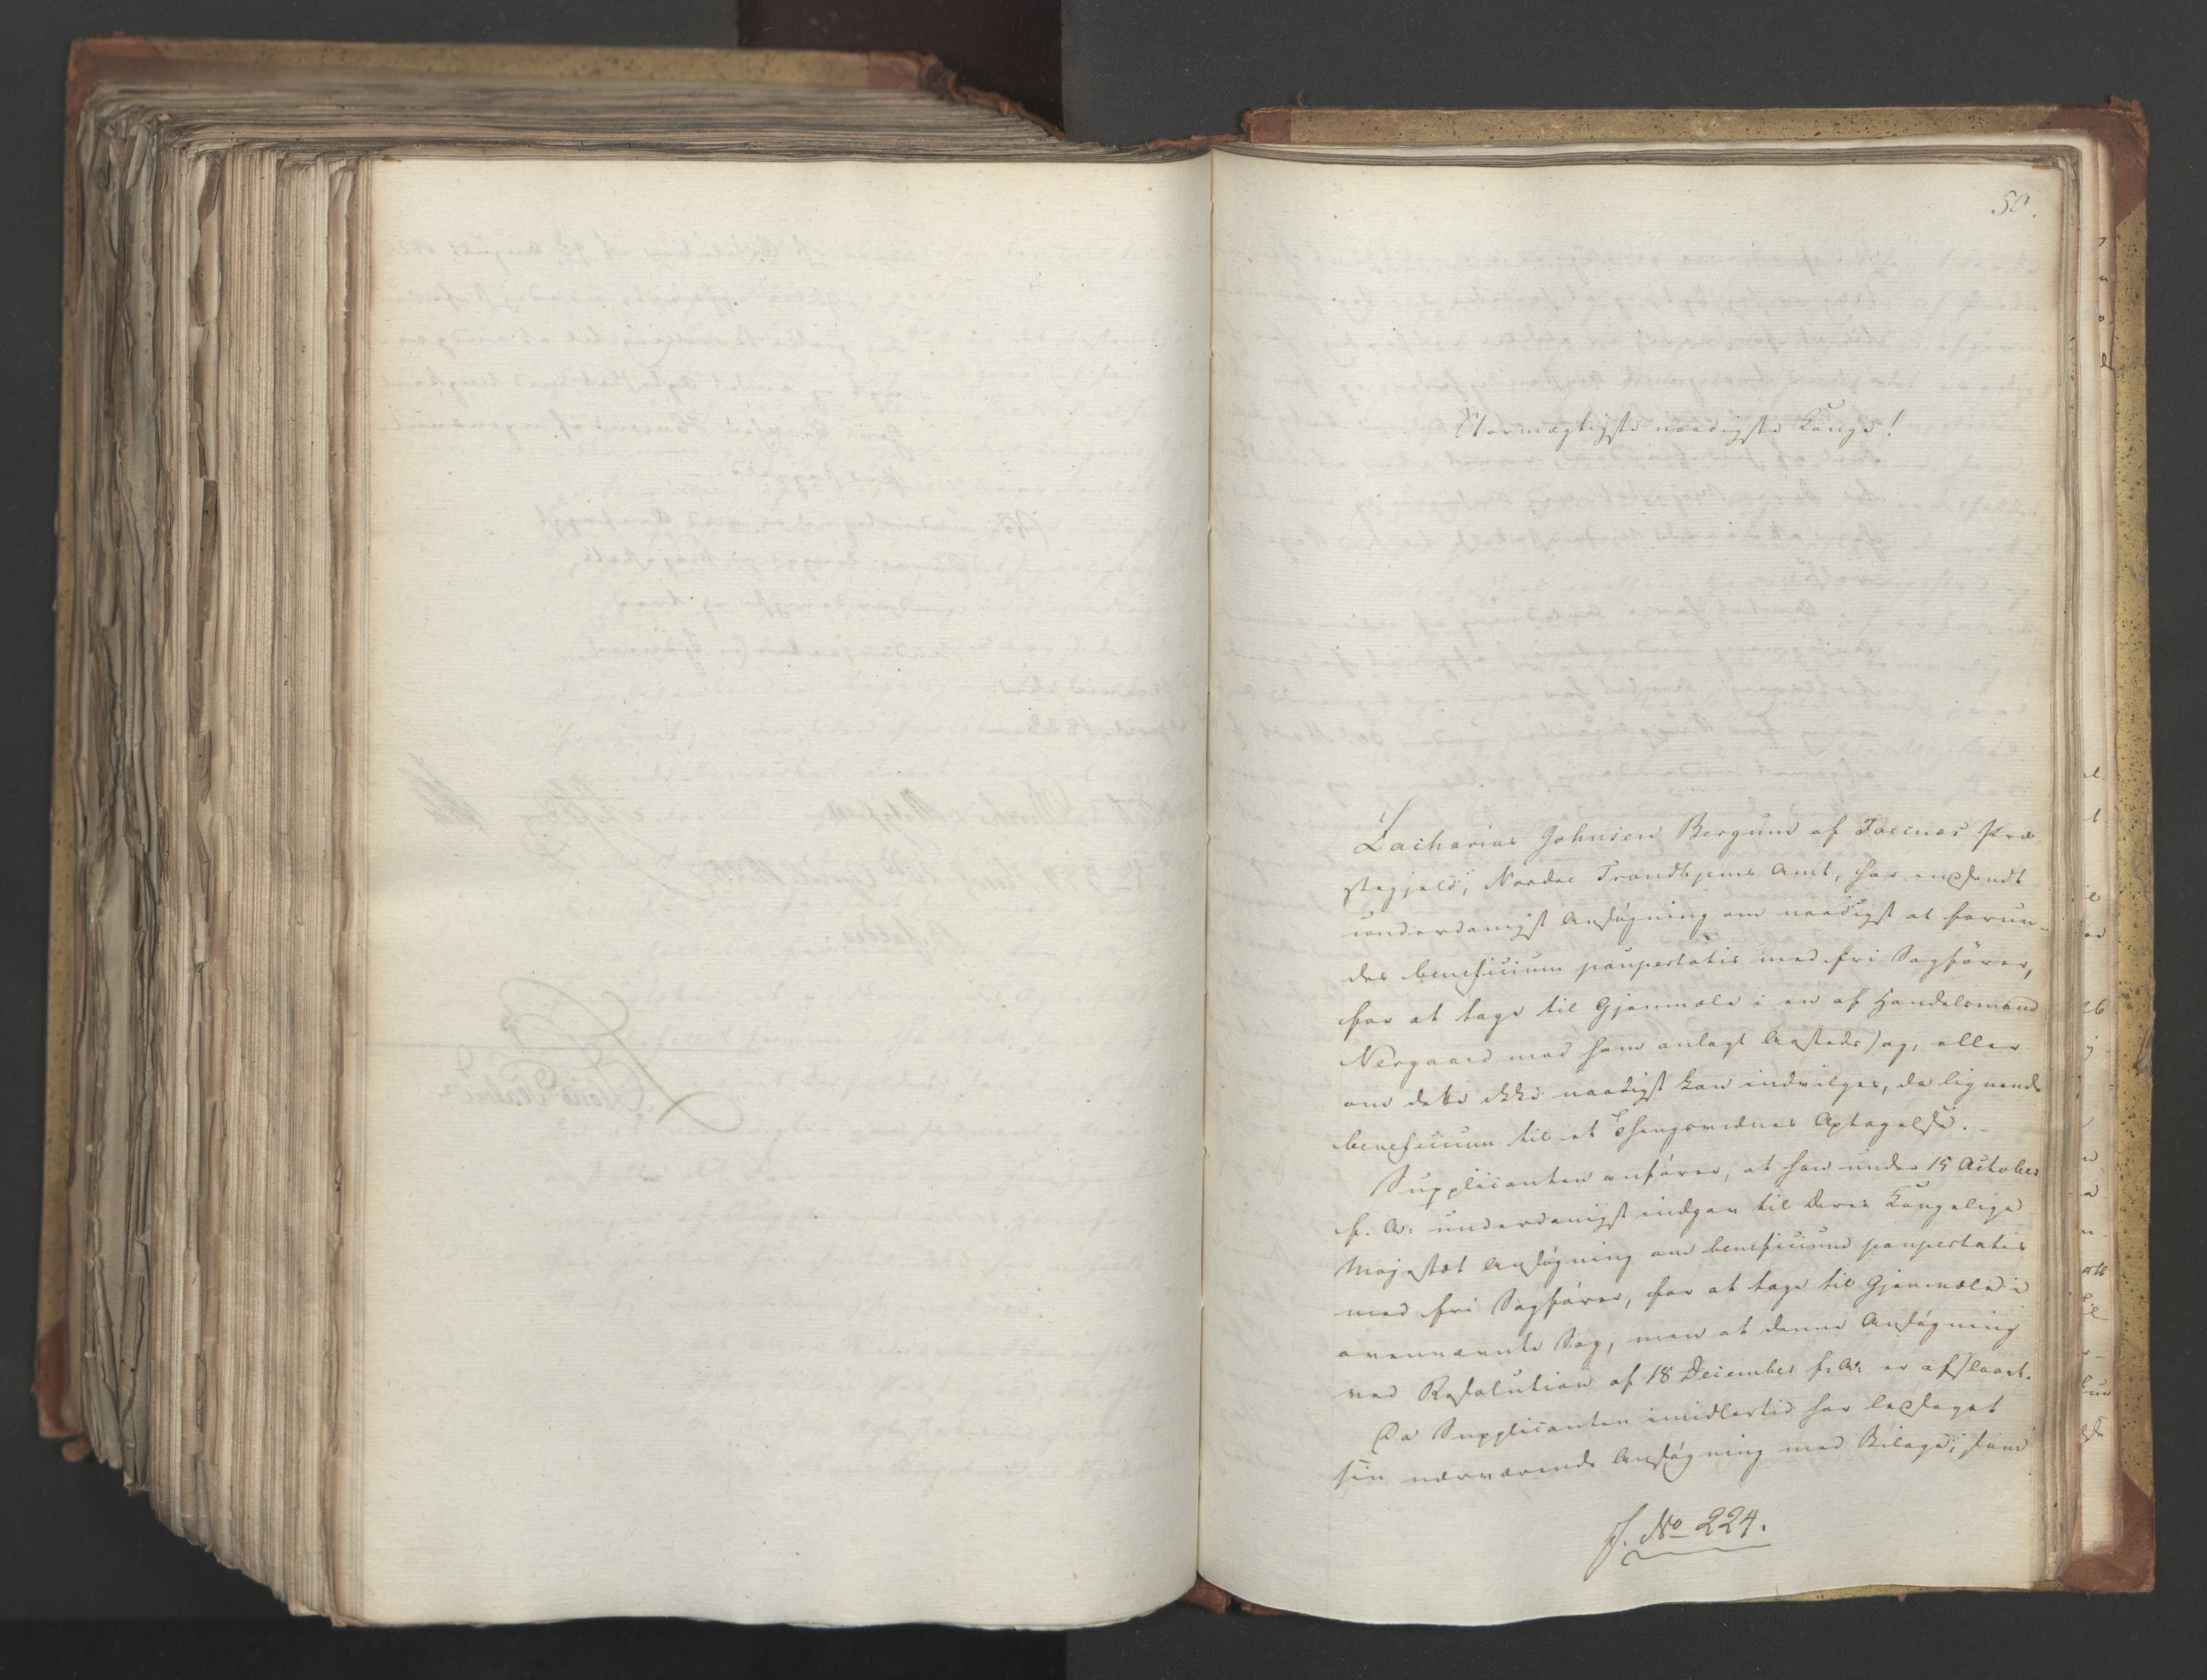 50.
Stormægtigste naadigste Konge!
Zacharias Johnsen Bergund af Foesnæs Præ-
stegjeld, Nordre Trondhjems Amt, har indsendt
underdanigst Ansøgning om naadigst at forun-
des beneficium paupertatis med fri Sagfører,
for at tage til Gjenmæle i en af Handelsmand
Nergaard mod ham anlagt Aastedssag, eller
om dette ikke naadigst kan indvilges, da lignende
beneficium til et Thingsvidnes Optagelse. -
Supplicanten anfører, at han under 15 October
f. A: underdanigst indgav til Deres Kongelige
Majestæt Ansøgning om beneficium paupertatis
med fri Sagfører, for at tage til Gjenmæle i
ovennævnte Sag, men at denne Ansøgning
ved Resolution af 18 December f: A: er afslaaet.
Da Supplicanten imidlertid har ledsaget
sin nærværende Ansøgning med Bilage, som
J. No 224.